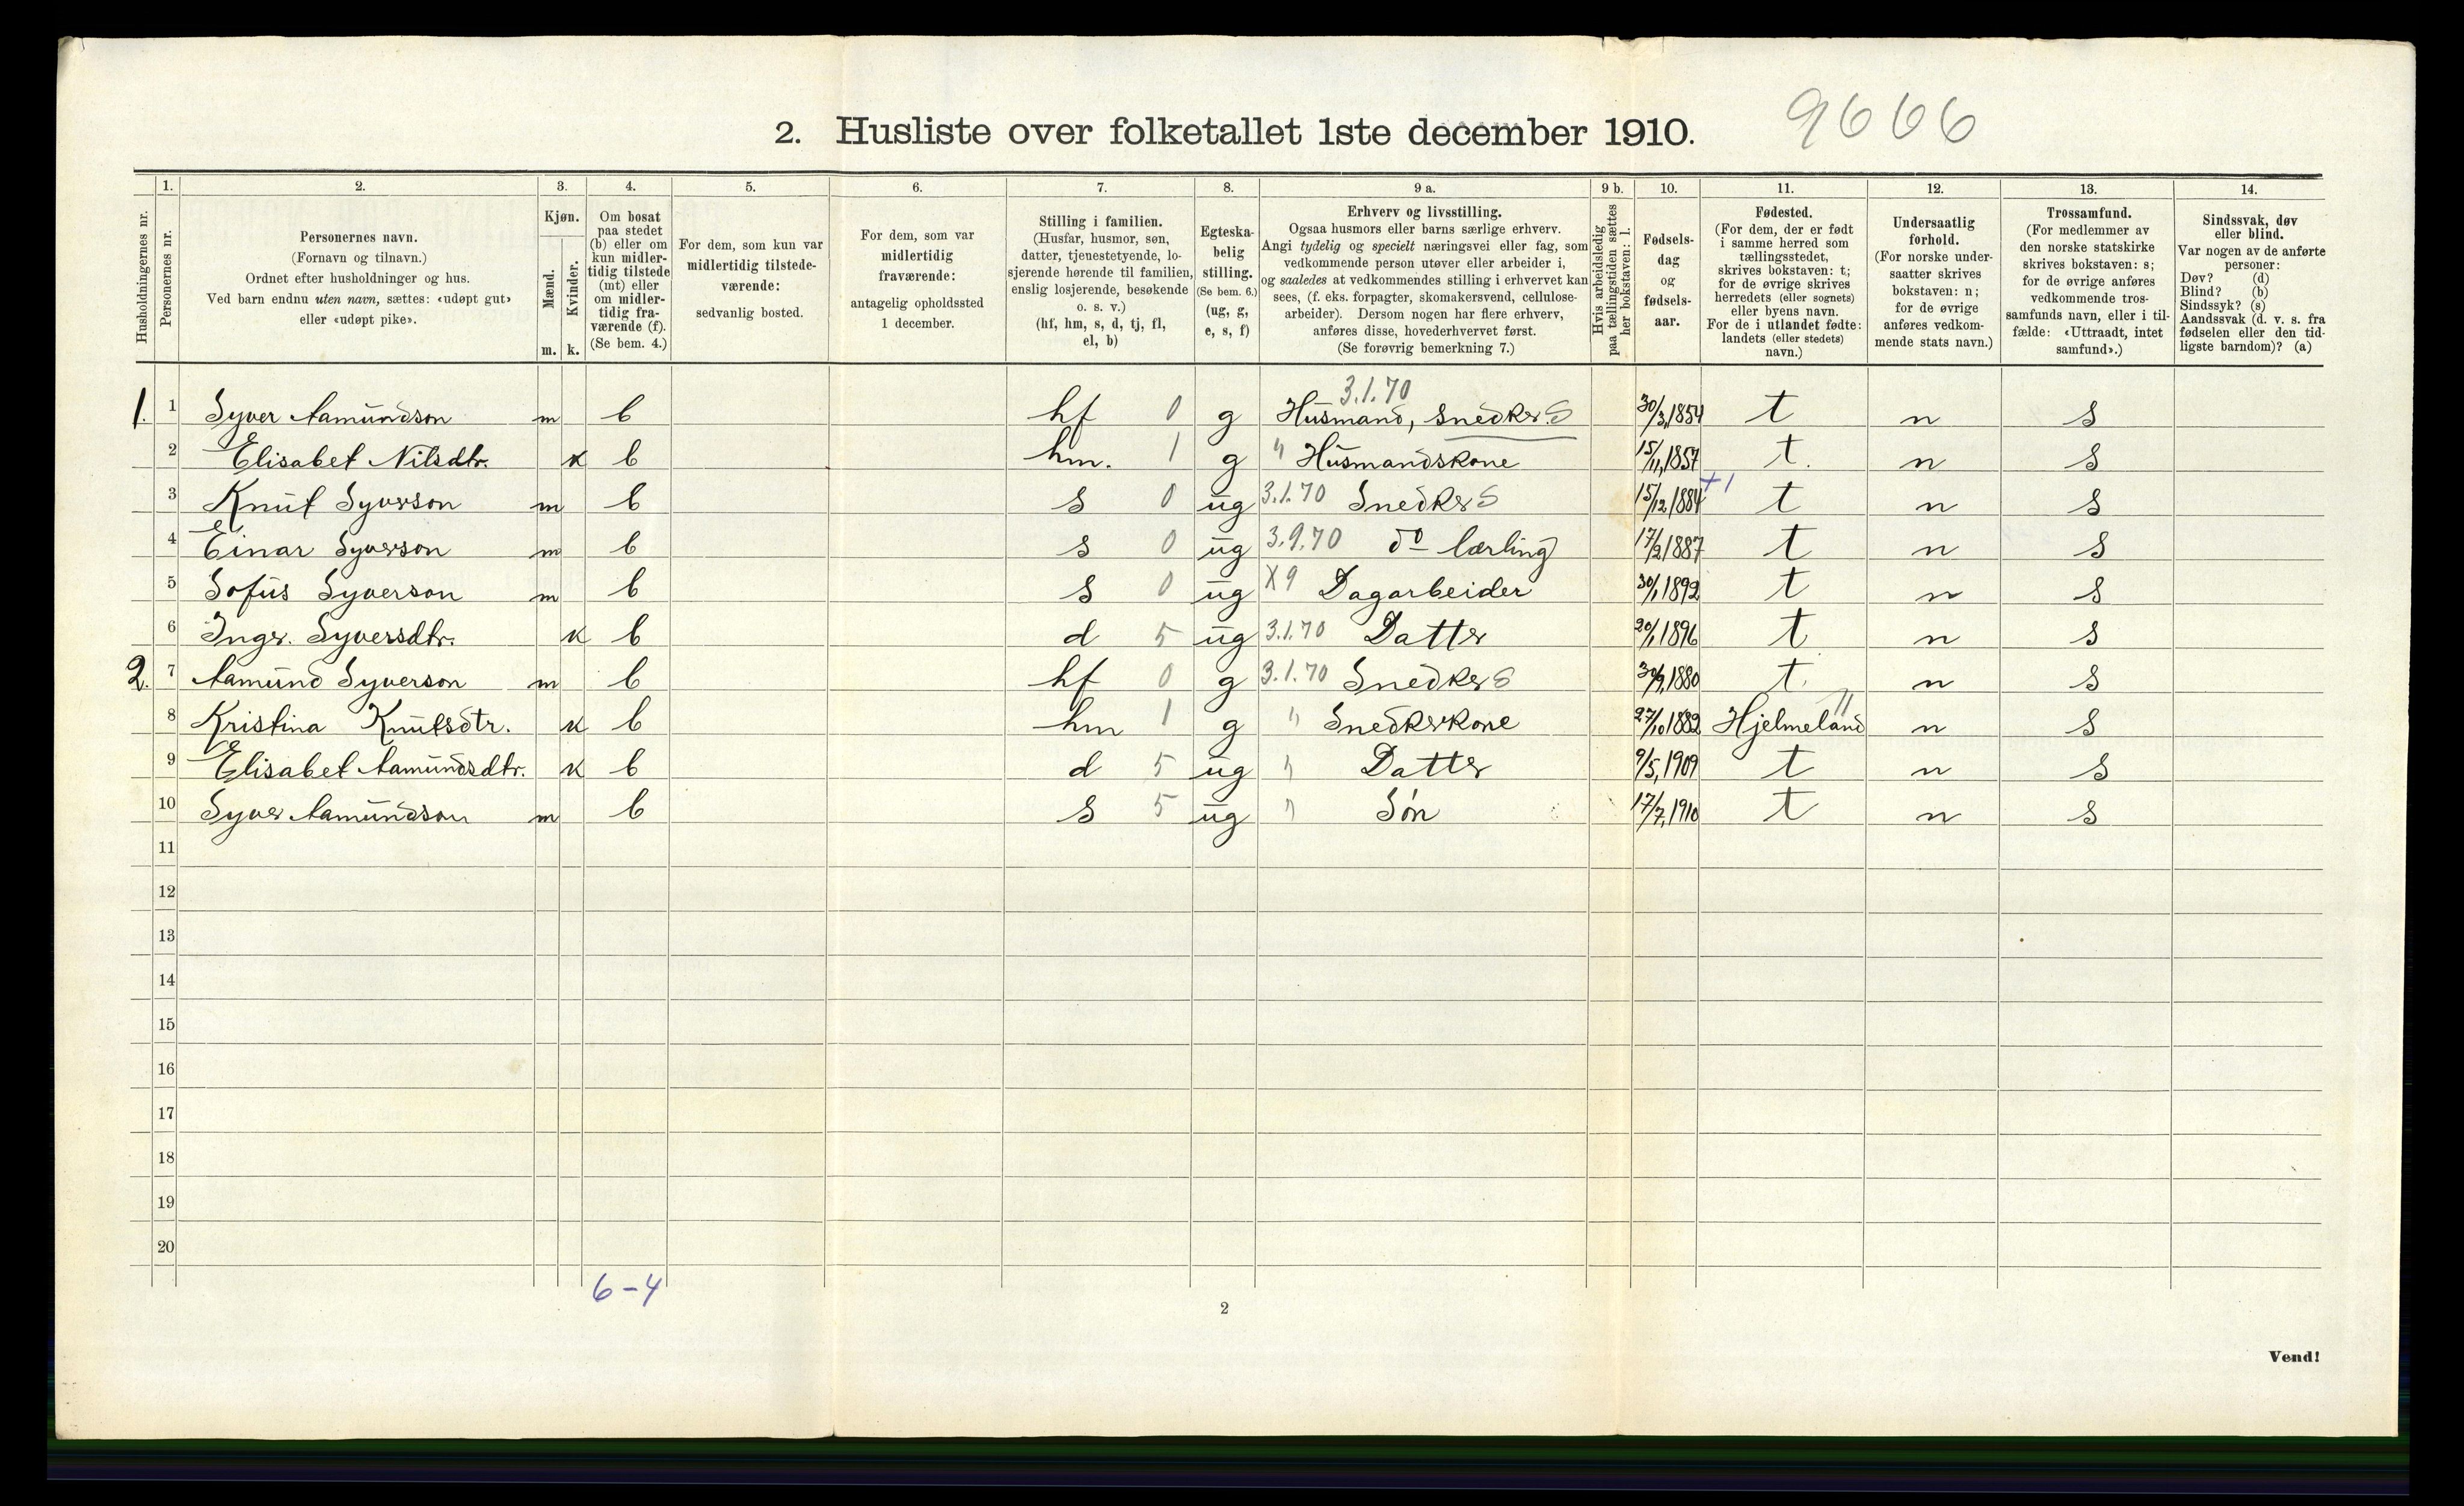 2. Husliste over folketallet 1ste december 1910. 9666
1. 2. 3. 4. 5. 6. 7. 8. 9 a. 9 b. 10. 11. 12. 13. 14.
Husholdningernes nr.
Personernes nr.
Personernes navn.
(Fornavn og tilnavn.)
Ordnet efter husholdninger og hus.
Ved barn endnu uten navn, sættes: «udøpt gut»
eller «udøpt pike».
Kjøn.
Mænd.
Kvinder.
m. k.
Om bosat
paa stedet
(b) eller om
kun midler-
tidig tilstede
(mt) eller
om midler-
tidig fra-
værende (f).
(Se bem. 4.)
For dem, som kun var
midlertidig tilstede-
værende:
sedvanlig bosted.
For dem, som var
midlertidig
fraværende:
antagelig opholdssted
1 december.
Stilling i familien.
(Husfar, husmor, søn,
datter, tjenestetyende, lo-
sjerende hørende til familien,
enslig losjerende, besøkende
o. s. v.)
(hf, hm, s, d, tj, fl,
el, b)
Egteska-
belig
stilling.
(Se bem. 6.)
(ug, g,
e, s, f)
Erhverv og livsstilling.
Ogsaa husmors eller barns særlige erhverv.
Angi tydelig og specielt næringsvei eller fag, som
vedkommende person utøver eller arbeider i,
og saaledes at vedkommendes stilling i erhvervet kan
sees, (f. eks. forpagter, skomakersvend, cellulose-
arbeider). Dersom nogen har flere erhverv,
anføres disse, hovederhvervet først.
(Se forøvrig bemerkning 7.)
Hvis arbeidsledig
paa tællingstiden sættes
her bokstaven: l.
Fødsels-
dag
og
fødsels-
aar.
Fødested.
(For dem, der er født
i samme herred som
tællingsstedet,
skrives bokstaven: t;
for de øvrige skrives
herredets (eller sognets)
eller byens navn.
For de i utlandet fødte:
landets (eller stedets)
navn.)
Undersaatlig
forhold.
(For norske under-
saatter skrives
bokstaven: n;
for de øvrige
anføres vedkom-
mende stats navn.)
Trossamfund.
(For medlemmer av
den norske statskirke
skrives bokstaven: s;
for de øvrige anføres
vedkommende tros-
samfunds navn, eller i til-
fælde: «Uttraadt, intet
samfund».)
Sindssvak, døv
eller blind.
Var nogen av de anførte
personer:
Døv? (d)
Blind? (b)
Sindssyk? (s)
Aandssvak (d. v. s. fra
fødselen eller den tid-
ligste barndom)? (a)
3.1.70
1. 1 Syver Aamundson m b hf 0 g Husmand, snedker S 30/3,1854 t n s
2 Elisabet Nilsdtr. k b hm. 1 g " Husmandskone 15/11,1857 t. n s
3 Knut Syverson m b s 0 ug 3.1.70 Snedker S 15/12,1884 +1 t n s
4 Einar Syverson m b s 0 ug 3.9.70 do lærling 17/2,1887 t n s
5 Sofus Syverson m b s 0 ug X9 Dagarbeider 30/1,1892 t n s
6 Inger. Syversdtr. k b d 5 ug 3.1.70 Datter 20/1,1896 t n s
2. 7 Aamund Syverson m b hf 0 g 3.1.70 Snedker S 30/9,1880 t. n s
8 Kristina Knutsdtr. k b hm 1 g " Snedkerkone 27/10,1882 Hjelmeland 11 n s
9 Elisabet Aamundsdtr. k b d 5 ug " Datter 9/5,1909 t n s
10 Syver Aamundson m b s 5 ug " Søn 17/7,1910 t n s
11
12
13
14
15
16
17
18
19
20
6-4
2
Vend!